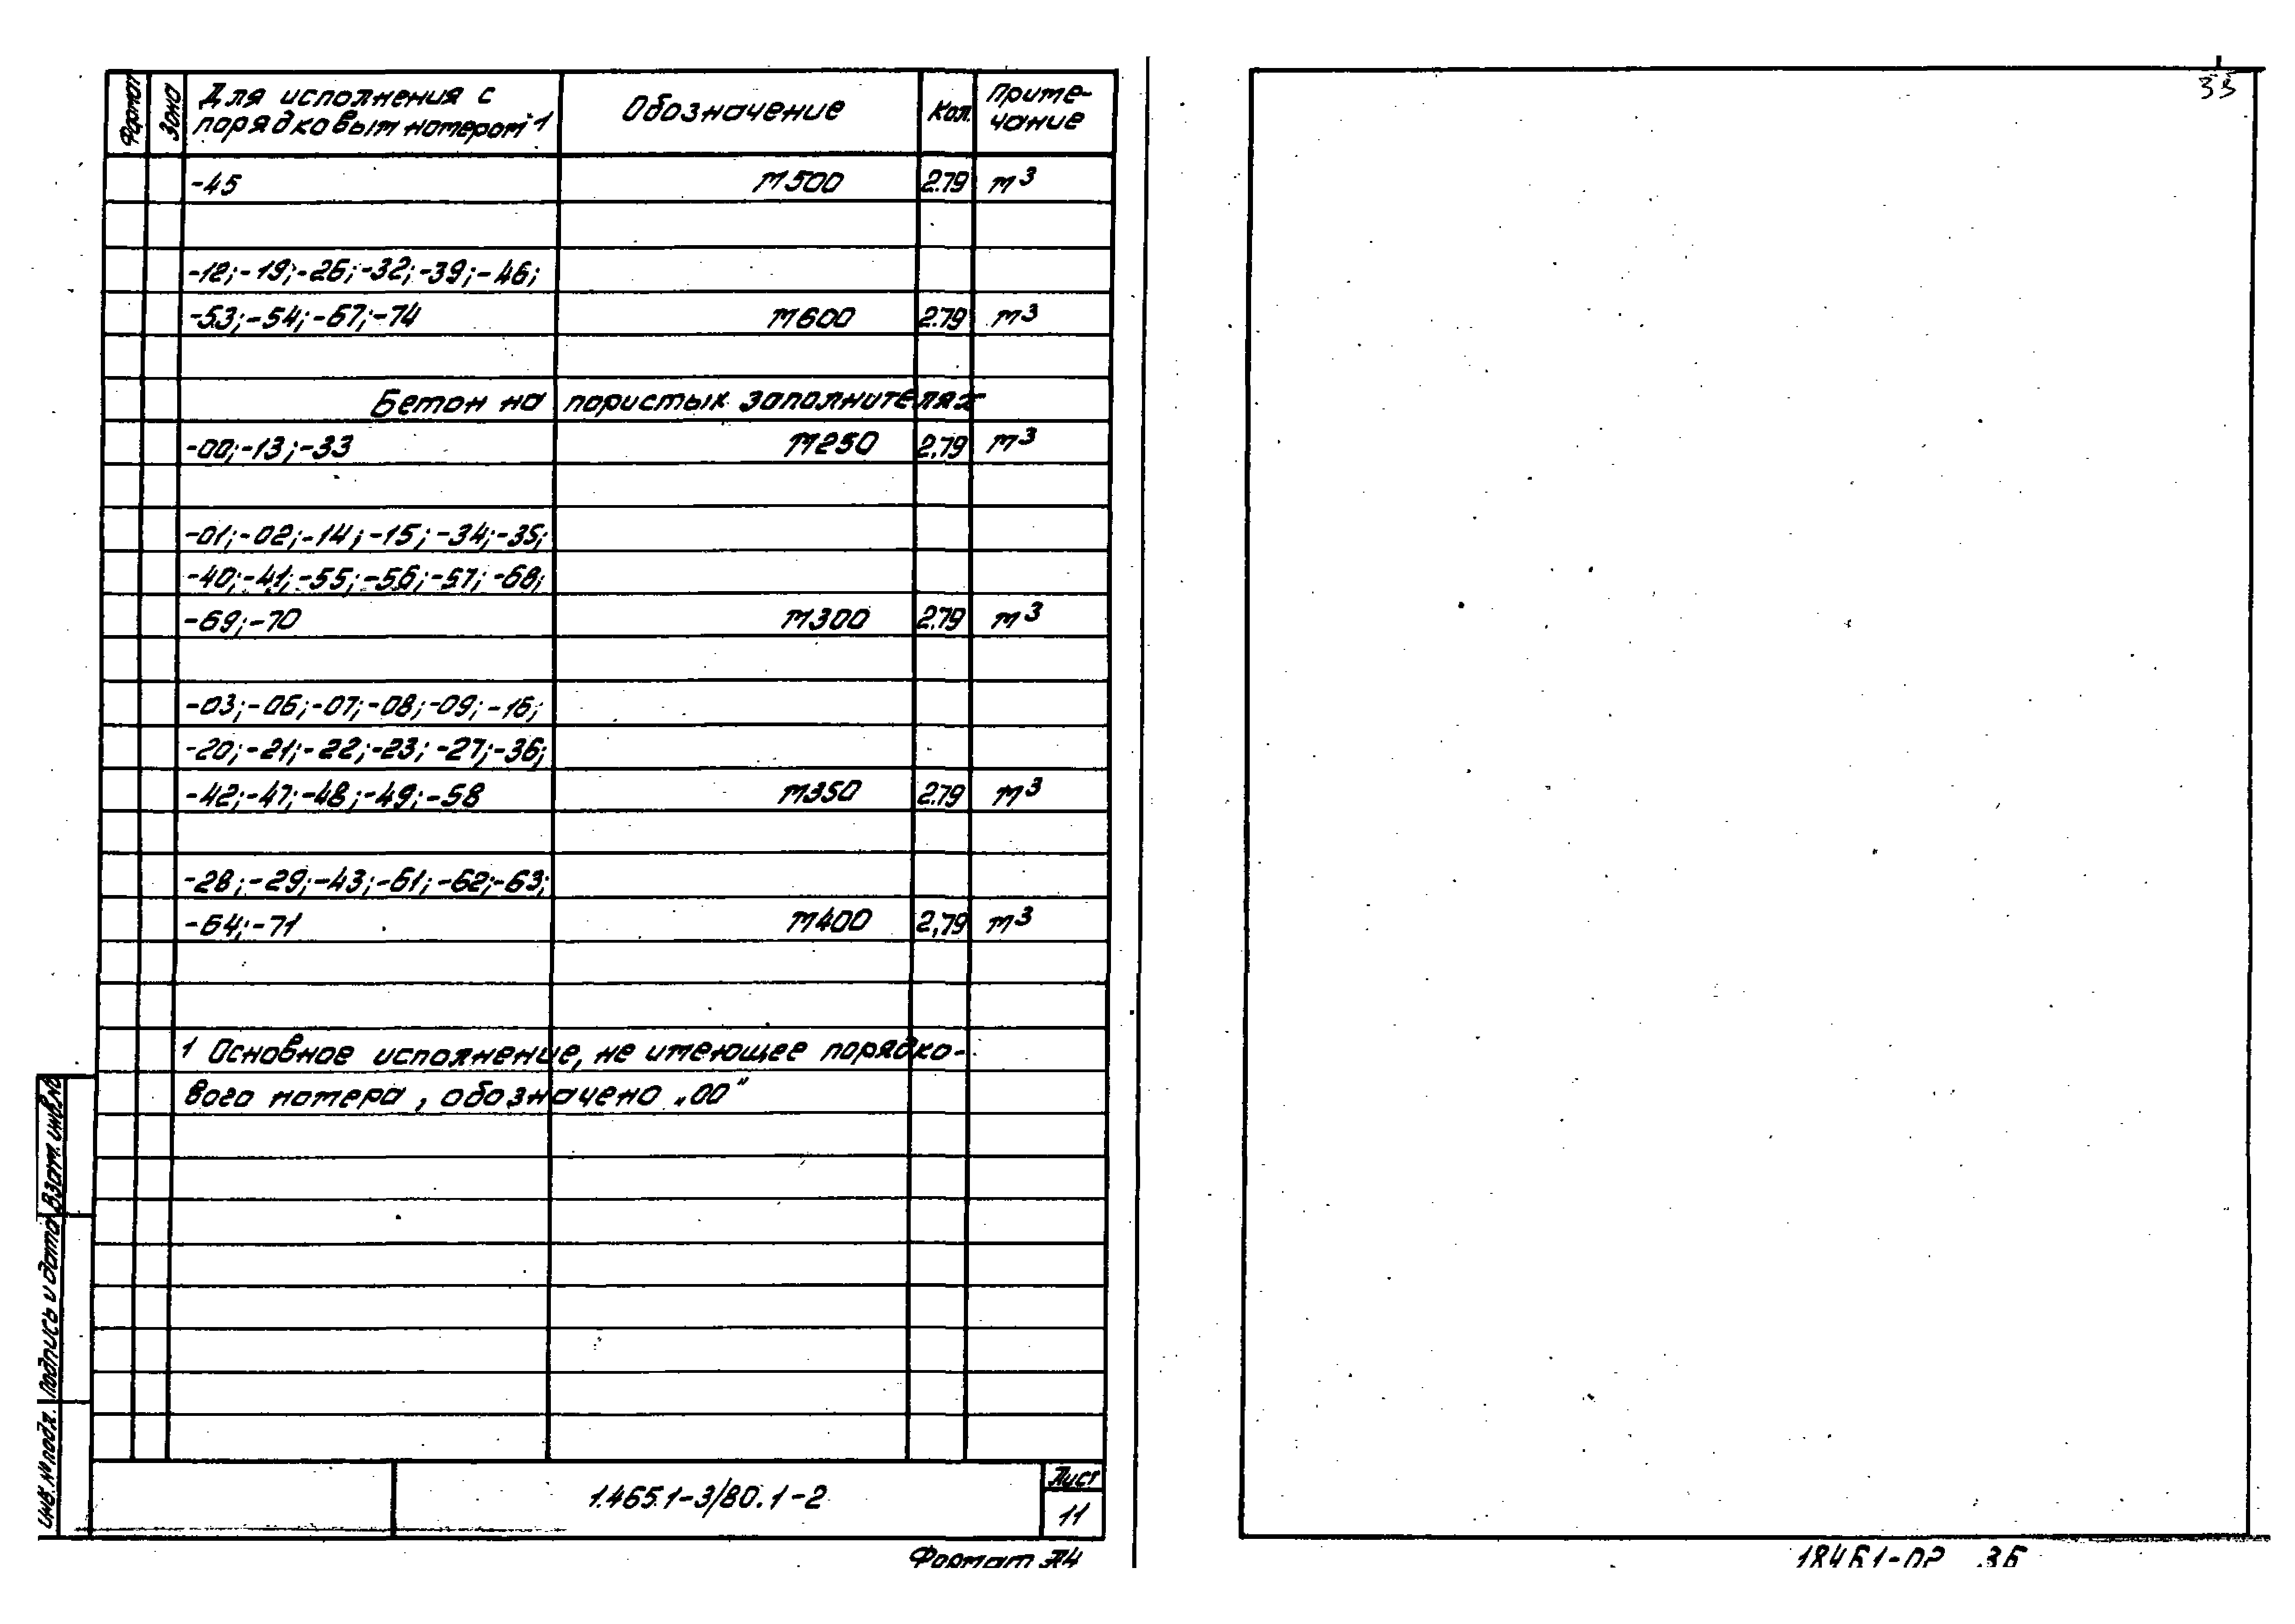 Формат
Зона
Для исполнения с порядковым номером 1
Обозначение
Кол.
Приме-
чание
-45 М500 2.79 м3
-12;-19;-26;-32;-39;-46;
-53;-54;-67;-74 М600 2.79 м3
Бетон на пористых заполнителях
-00;-13;-33 М250 2,79 м3
-01;-02;-14;-15;-34;-35;
-40;-41;-55;-56;-57;-68;
-69;-70 М300 2.79 м3
-03;-06;-07;-08;-09;-16;
-20;-21;-22;-23;-27;-36;
-42;-47;-48;-49;-58 М350 2.79 м3
-28;-29;-43;-61;-62;-63;
-64;-71 М400 2,79 м3
1 Основное исполнение, не имеющее порядко-
вого номера, обозначено „00"
Взам. инв.№
Подпись и дата
Инв.№ подл.
1.465.1-3/80.1-2
Лист
11
Формат А4
33
18461-02 36